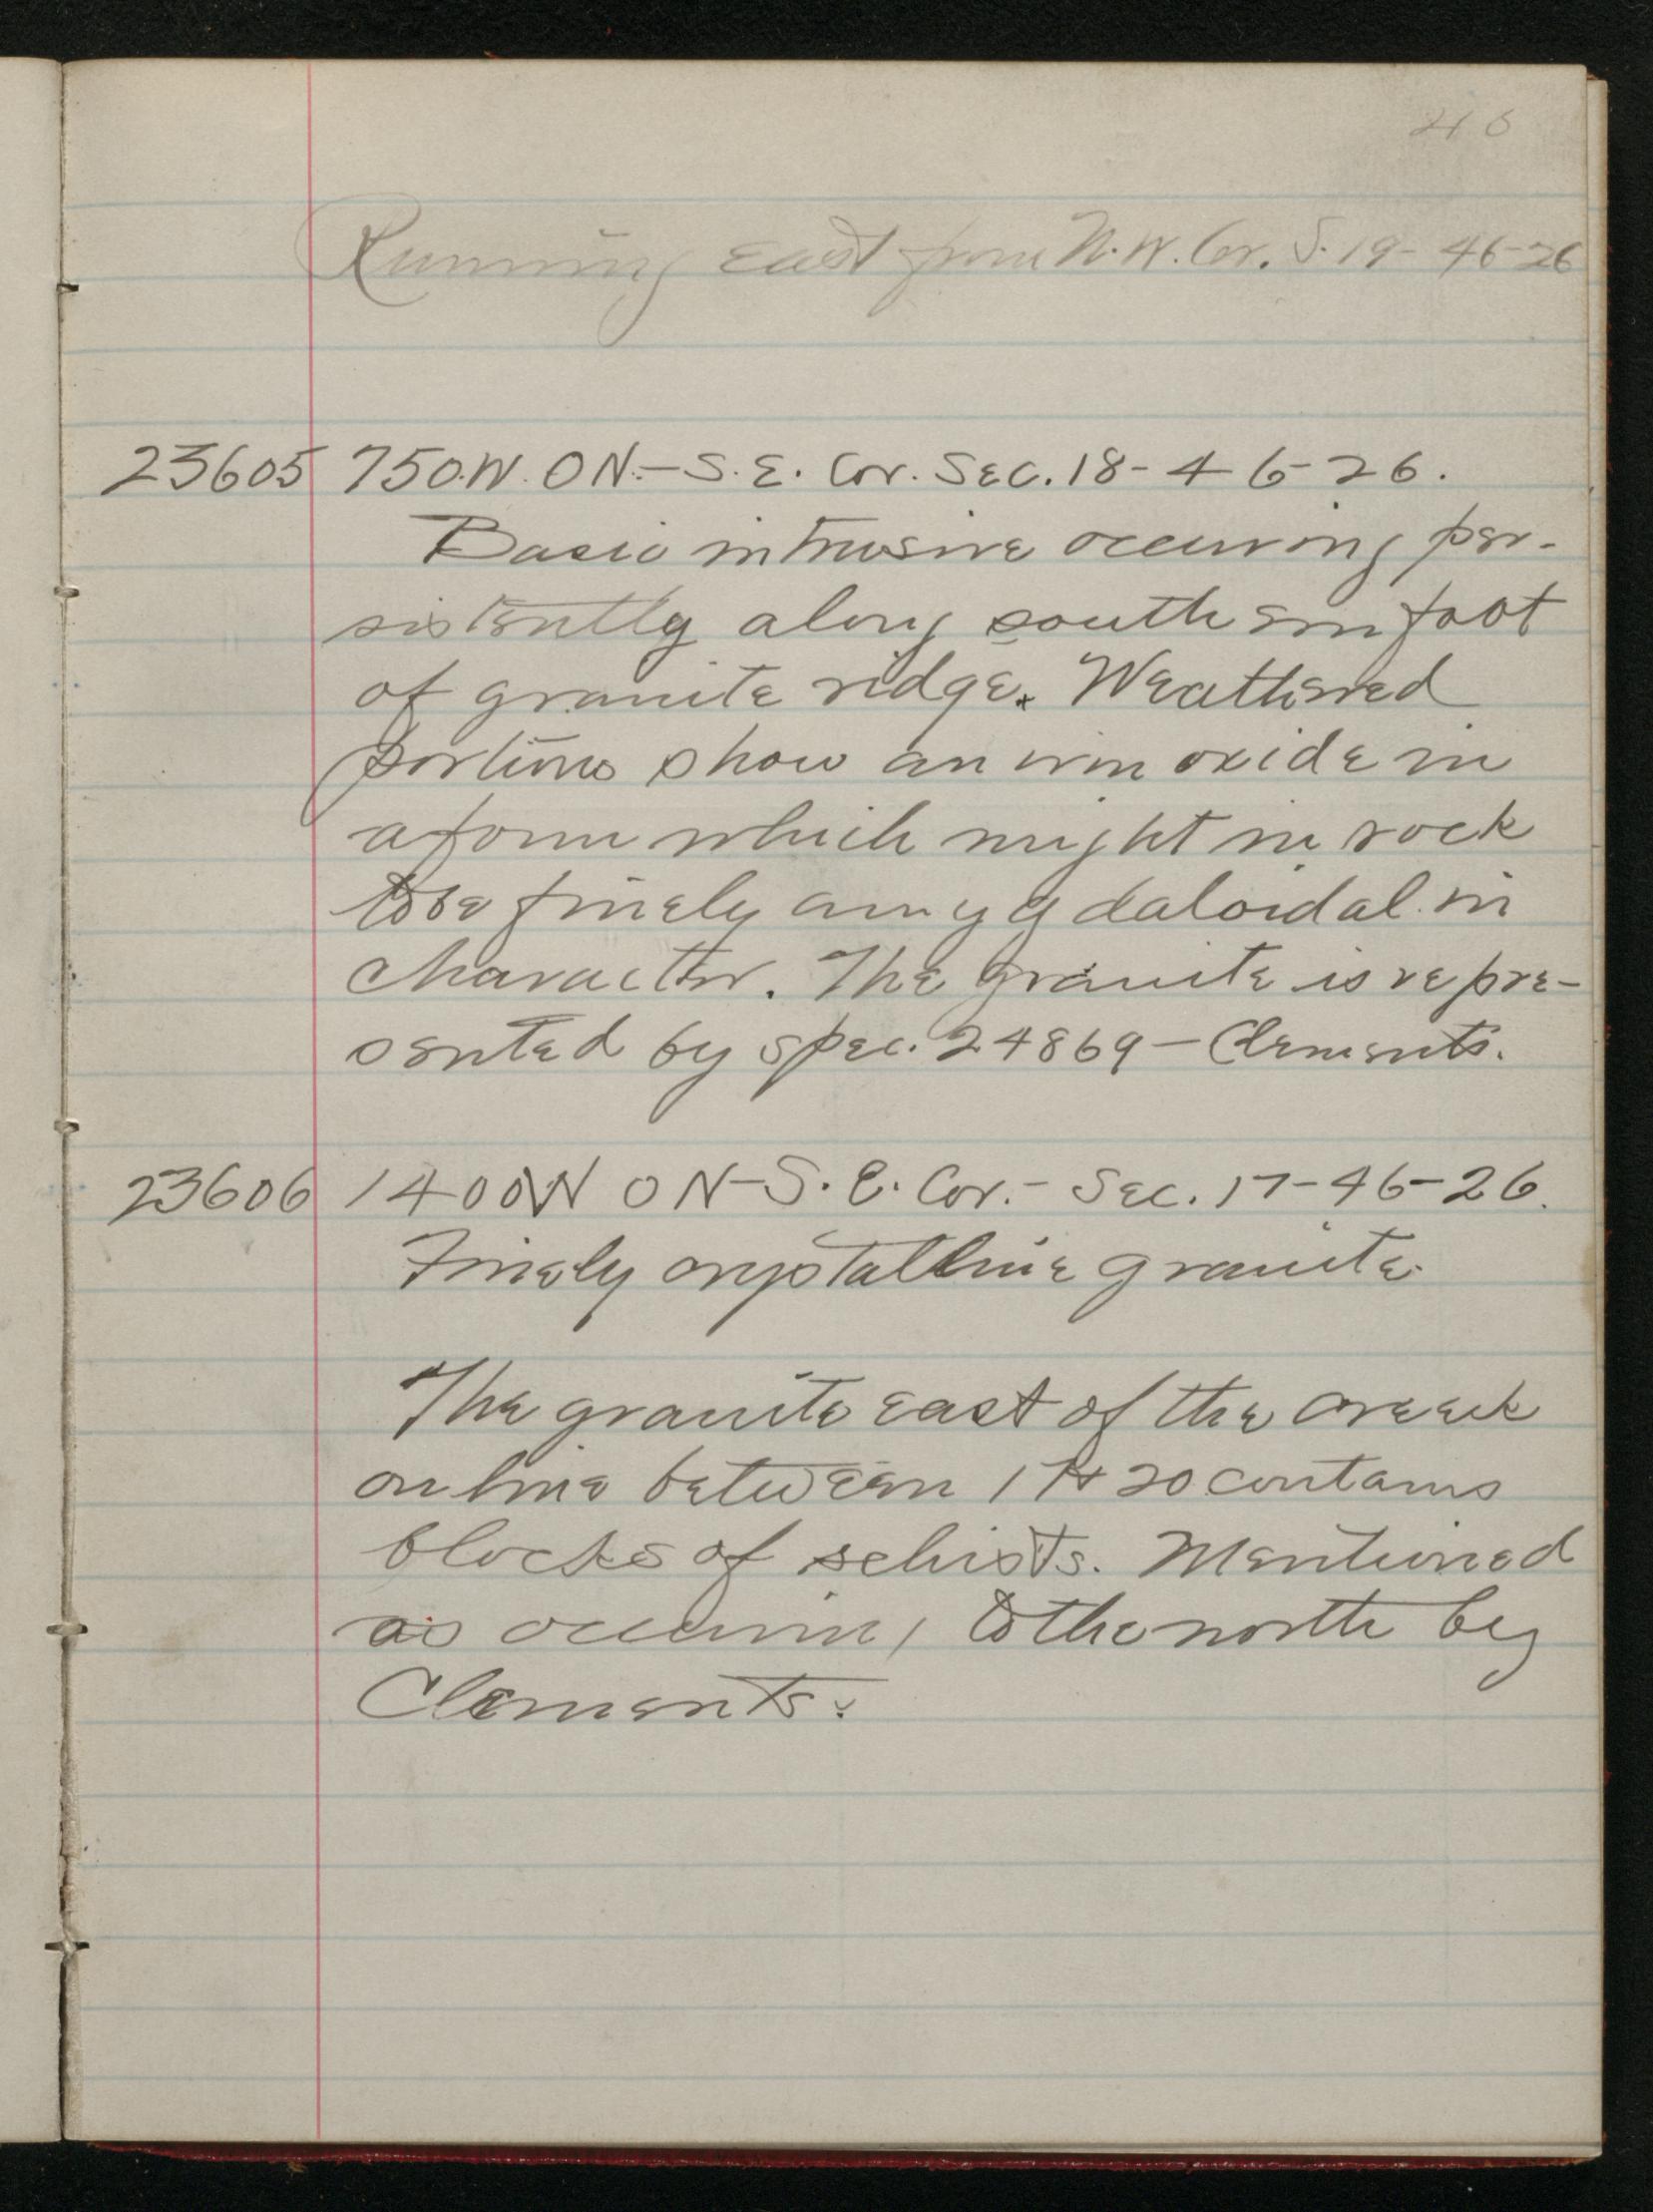 46
Running east from N.W. Cor. S. 19-46-26
23605 750.W. ON.-S.E. Cor. Sec. 18-46-26.
Basic intrusive occuring per-
sistently along southern foot
of granite ridge. Weathered
portions show an iron oxide in
a form which might in rock
to be finely amygdaloidal in
character. The granite is repre-
sented by spec. 24869-Clements.
23606 1400W ON-S.E. Cor.-Sec. 17-46-26.
Finely crystalline granite.
The granite east of the creek
on line between 17 & 20 contains
blocks of schists. Mentioned
as occuring to the north by
Clements.